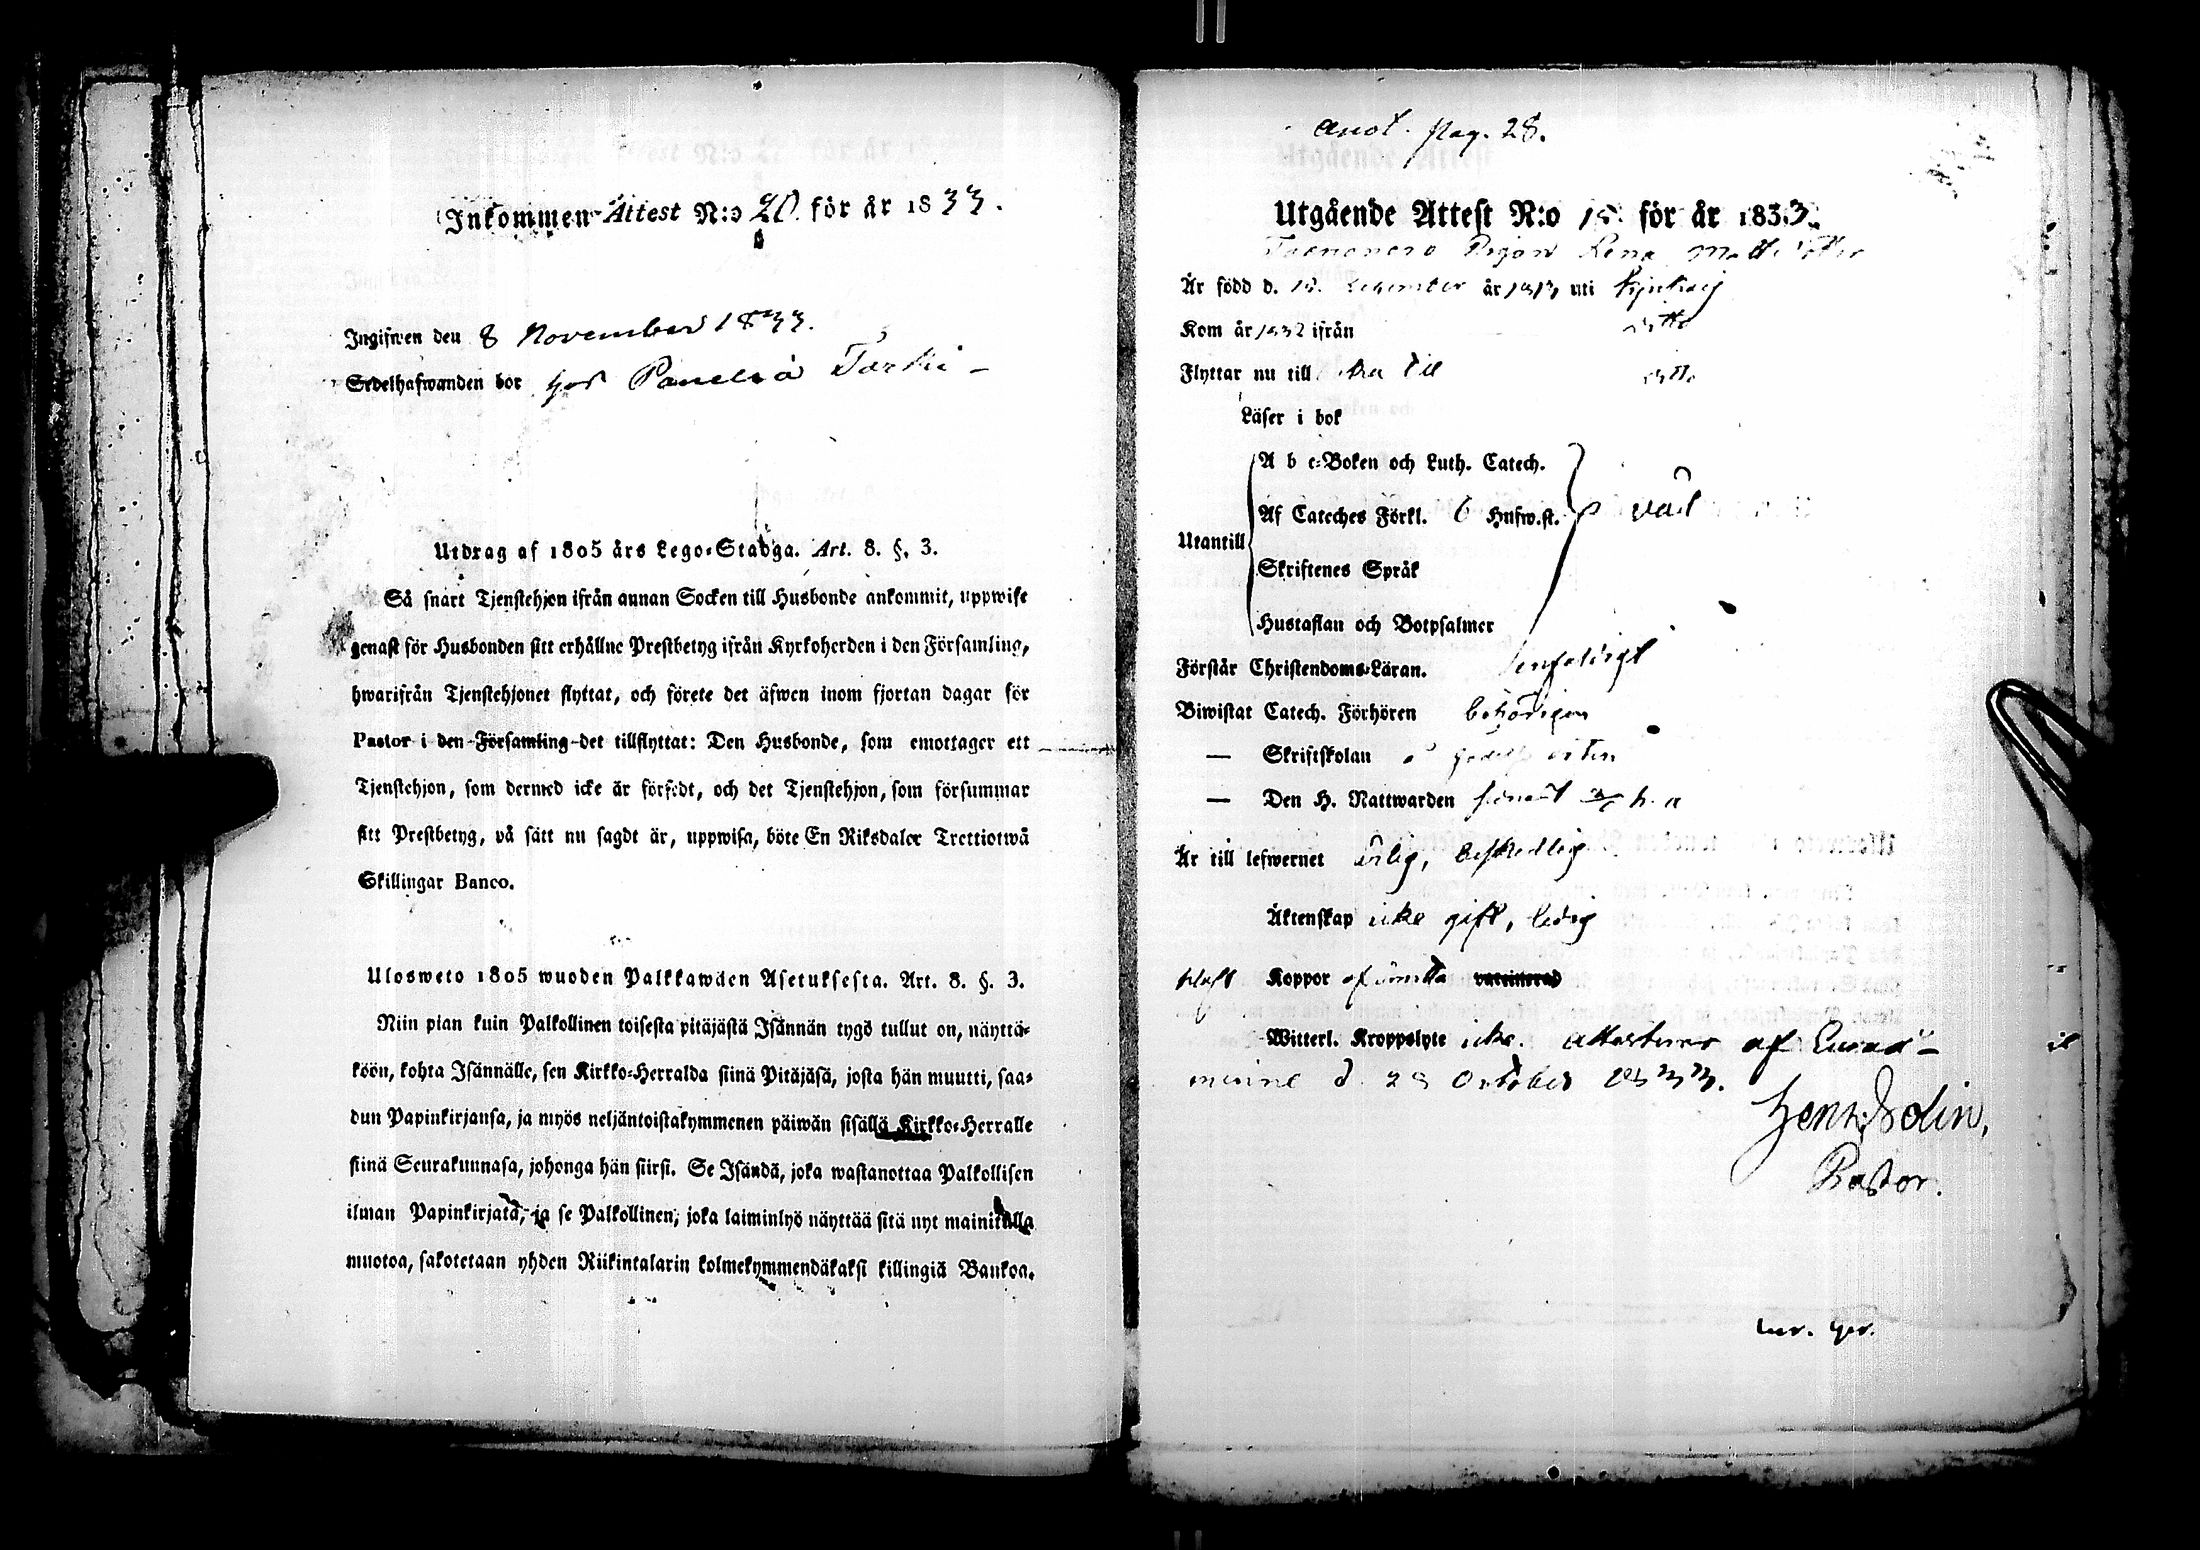 Inkommen Attest N:o 20. för år 1833.
Ingifwen den 8 November 1833.
Sedelhafwanden bor hos Panelia Torki
Utdrag af 1805 års Lego-Stadga. Art. 8. §. 3.
Så snart Tjenstehjon ifrån annan Socken till Husbonde ankommit, uppwise
genast för Husbonden sitt erhållne Prestbetyg ifrån Kyrkoherden i den Församling,
hwarifrån Tjenstehjonet flyttat, och förete det äfwen inom fjortan dagar för
Pastor i den Församling det tillflyttat: Den Husbonde, som emottager ett
Tjenstehjon, som dermed icke är försedt, och det Tjenstehjon, som försummar
sitt Prestbetyg, på sätt nu sagdt är, uppwisa, böte En Riksdaler Trettiotwå
Skillingar Banco.
Ulosweto 1805 wuoden Palkkawäen Asetuksesta. Art. 8. §. 3.
Niin pian kuin Palkollinen toisesta pitäjästä Isännän tygö tullut on, näyttä-
köön, kohta Isännälle, sen Kirkko-Herralda siinä Pitäjäsä, josta hän muutti, saa-
dun Papinkirjansa, ja myös neljäntoistakymmenen päiwän sisällä Kirkko-Herralle
siinä Seurakunnasa, johonga hän siirsi. Se Isändä, joka wastanottaa Palkollisen
ilman Papinkirjatä, ja se Palkollinen, joka laiminlyö näyttää sitä nyt mainitulla
muotoa, sakotetaan yhden Riikintalarin kolmekymmendäkaksi killingiä Bankoa.
anot. pag. 28.
Utgående Attest N:o 15. för år 1833.
Pigan Lena Mattsdotter
Är född d. December år 1813 uti
Kom år 1832 ifrån ditto
Flyttar nu till ditto
Läser i bok
A b c-Boken och Luth. Catech.
Af Cateches Förkl. 6 Hufw.st.
Utantill
Skriftenes Språk
Hustaflan och Botpsalmer
Förstår Christendoms-Läran. enfaldigt
Biwistat Catech. Förhören behörigen
— Skriftskolan
— Den H. Nattwarden senast
Är till lefwernet ärlig, beskedlig
Äktenskap icke gift, ledig
Haft Koppor vaccinerad
Witterl. Kroppslyte icke. Attesteras af Eura-
minne d. 28 October 1833.
Henr. Pastor.